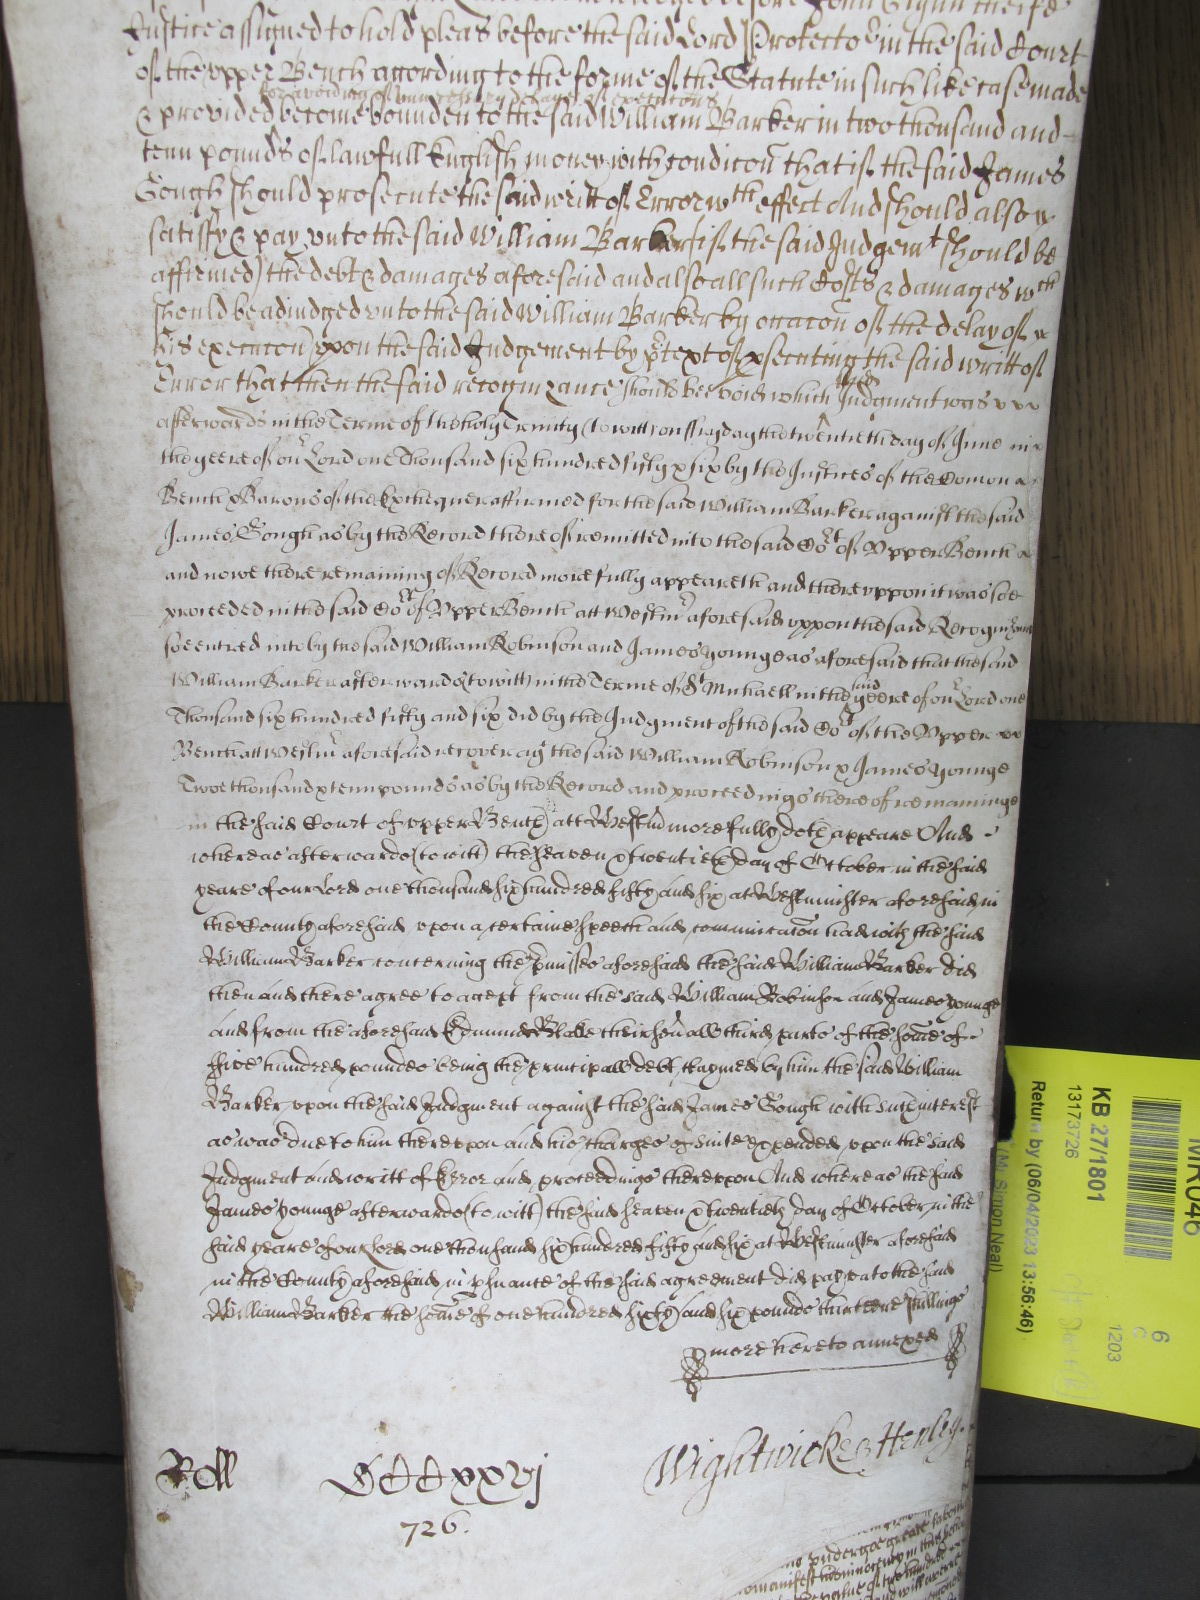 Justice assigned to hold pleas before the said Lord Protector in the said Court
of the upper Bench according to the forme of the Statute in such like case made
for avoiding of unnecessary delayes of executions
& provided become bounden to the said William Barker in two thousand and
tenn pounds of lawfull English money with condicon that if the said James
Gough should prosecute the said writt of Error wth effect And should also
satisfy & pay unto the said William Barker (if the said Judgemt should be
affirmed) the debt & damages aforesaid and also all such Costs & damages wch
should be adiudged unto the said William Barker by occacon of the delay of
his execucon upon the said Judgement by ptext of psecuting the said writt of
Error that then the said recognizance should bee void which Judgment was
afterwards in the Terme of the holy Trinity (to witt) on ffryday the twentieth day of June in
the yeere of our Lord one Thousand six hundred fifty & six by the Justices of the Comon
Bench & Barons of the Exchequer affirmed for the said William Barker against the said
James Gough as by the Record thereof remitted into the said Cort of Upper Bench
and nowe there remaining of Record more fully appeareth and thereuppon it was soe
proceeded in the said Cort of Upper Bench att Westmr aforesaid uppon the said Recognizance
soe entred into by the said William Robinson and James Younge as aforesaid that the said
William Barker afterwards (to witt) in the Terme of St Michaell in the said yeere of our Lord one
Thousand six hundred fifty and six did by the Judgment of the said Cort of the Upper
Bench att Westmr aforesaid recover agt the said William Robinson & James Younge
Twoe thousand & tenn pounds as by the Record and proceedings thereof remaininge
in the said Court of upper Bench att Westmr more fully doth appeare And
whereas afterwards (to witt) the seaven & twentieth day of October in the said
yeare of our Lord one thousand six hundred fifty and six at Westminster aforesaid in
the County aforesaid upon a certaine speech and communicacon had with the said
William Barker concerning the pmisses aforesaid the said William Barker did
then and there agree to accept from the said William Robinson and James Younge
and from the aforesaid Edmund Blake their severall third parts of the some of
ffive hundred poundes being the principall debt claymed by him the said William
Barker upon the said Judgment against the said James Gough with such interest
as was due to him thereupon and his charges of suite expended upon the said
Judgment and writt of Error and proceedings thereupon And whereas the said
James Younge afterwards (to witt) the said seaven & twentieth day of October in the
said yeare of our Lord one thousand six hundred fifty and six at Westminster aforesaid
in the County aforesaid in psuance of the said agreement did pay unto the said
William Barker the some of one hundred sixty and six pounds thirteene shillings
more hereto annexed
Roll CCCxxvj Wightwicke & Henley
726.
KB 27/1801
13173726
Return by (06/04/2023 13:56:46)
(Mr Simon Neal)
6
C
1203
MR046